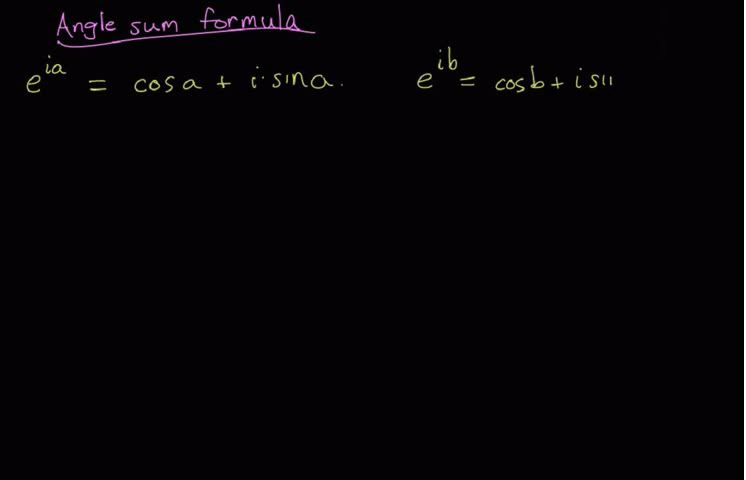 Angle sum formula
e^{ia} = cos a + i · sin a. e^{ib} = cos b + i